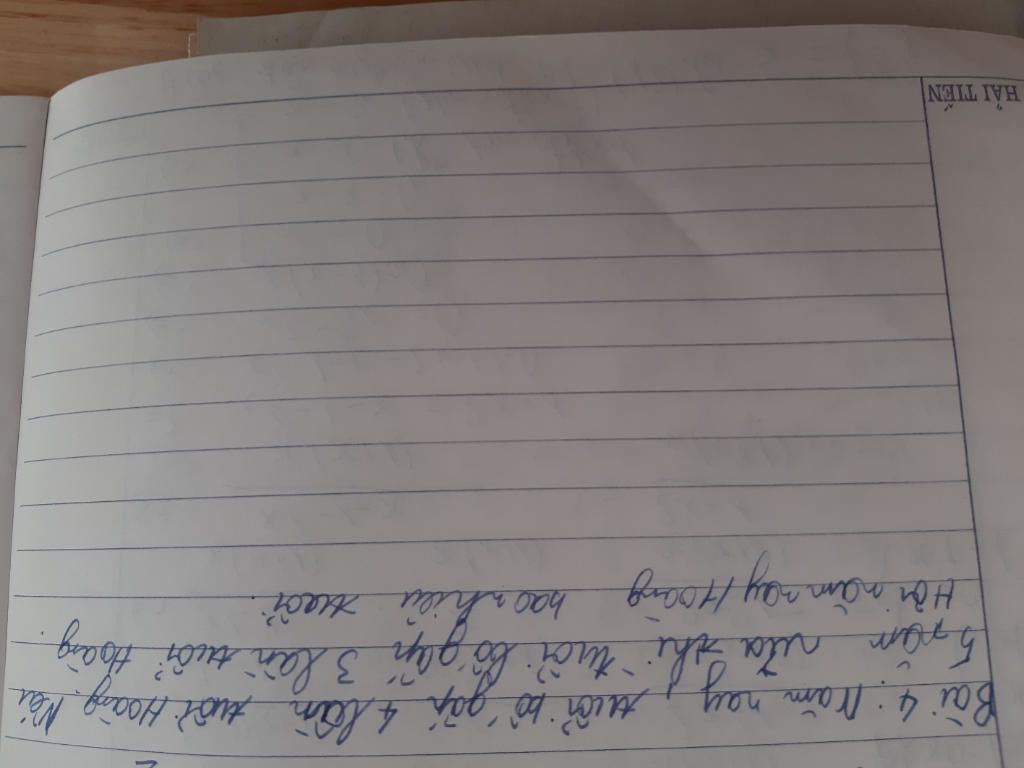 HẢI TIẾN
Bài 4. Năm nay, tuổi bố gấp 4 lần tuổi Hoàng. Nếu
5 năm nữa thì tuổi bố gấp 3 lần tuổi Hoàng.
Hỏi năm nay Hoàng bao nhiêu tuổi.